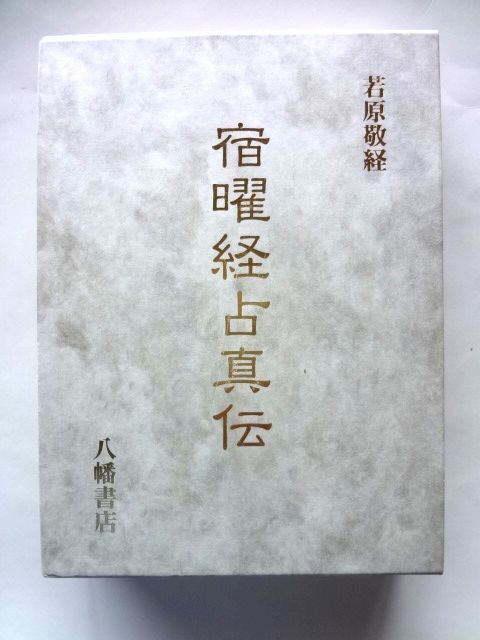 若原敬経
宿曜経占真伝
八幡書店